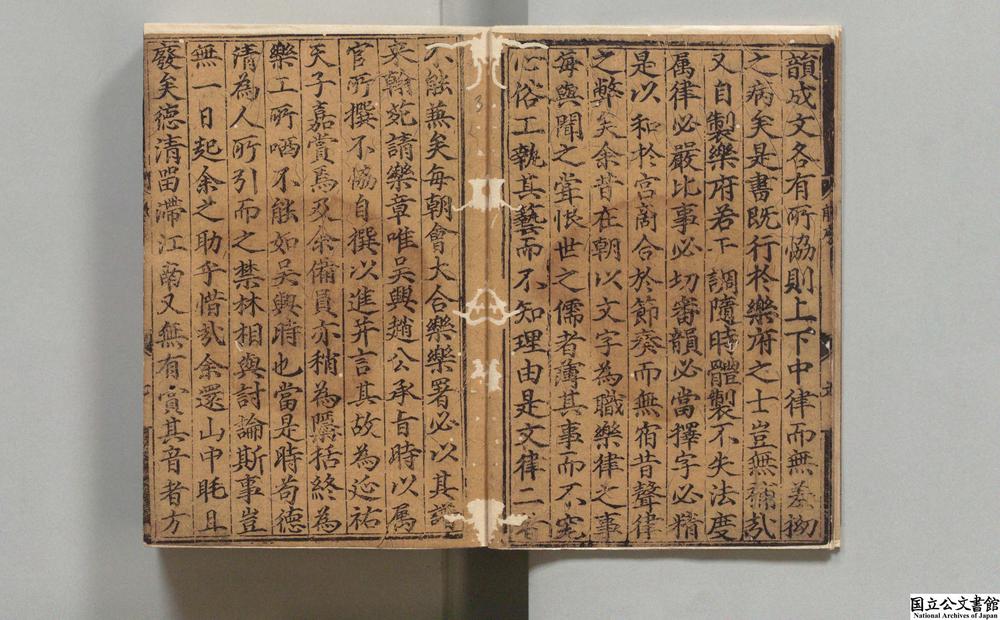 韻成文各有所恊則上下中律而無羞拗
之病矣是書既行扵樂府之士豈無補㢤
又自製樂府若干調隨時體製不失法度
属律必嚴比事必切審韻必當擇字必精
是以和扵宮商合扵節奏而無宿昔聲律
之弊矣余昔在朝以文字為職樂律之事
每與聞之甞恨世之儒者薄其事而不究
心俗工執其藝而不知理由是文律二者
不能兼矣每朝會大合樂樂署必以其譜
来翰苑請樂章唯吳興趙公承旨時以属
官所撰不恊自撰以進并言其故為延祐
天子嘉賞焉及余備員亦稍為檃括終為
樂工所哂不能如吳興時也當是時苟德
清為人所引而之禁林相與討論斯事豈
無一日起余之助乎惜㢤余還山中眊且
廢矣徳清留滯江南又無有賞其音者方
国立公文書館
National Archives of Japan